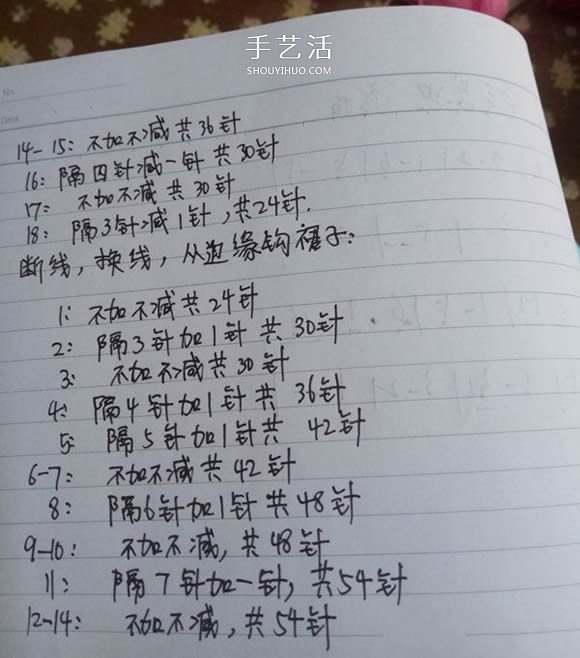 手艺活
SHOUYIHUO.COM
No.
DATE
14-15: 不加不减共36针
16: 隔四针减一针 共30针
17: 不加不减 共30针
18: 隔3针减1针,共24针.
断线,换线,从边缘钩裙子:
1: 不加不减共24针
2: 隔3针加1针 共 30针
3: 不加不减共30针
4: 隔4针加1针共 36针
5: 隔5针加1针共 42针
6-7: 不加不减共42针
8: 隔6针加1针共48针
9-10: 不加不减,共48针
11: 隔7针加一针,共54针
12-14: 不加不减,共54针